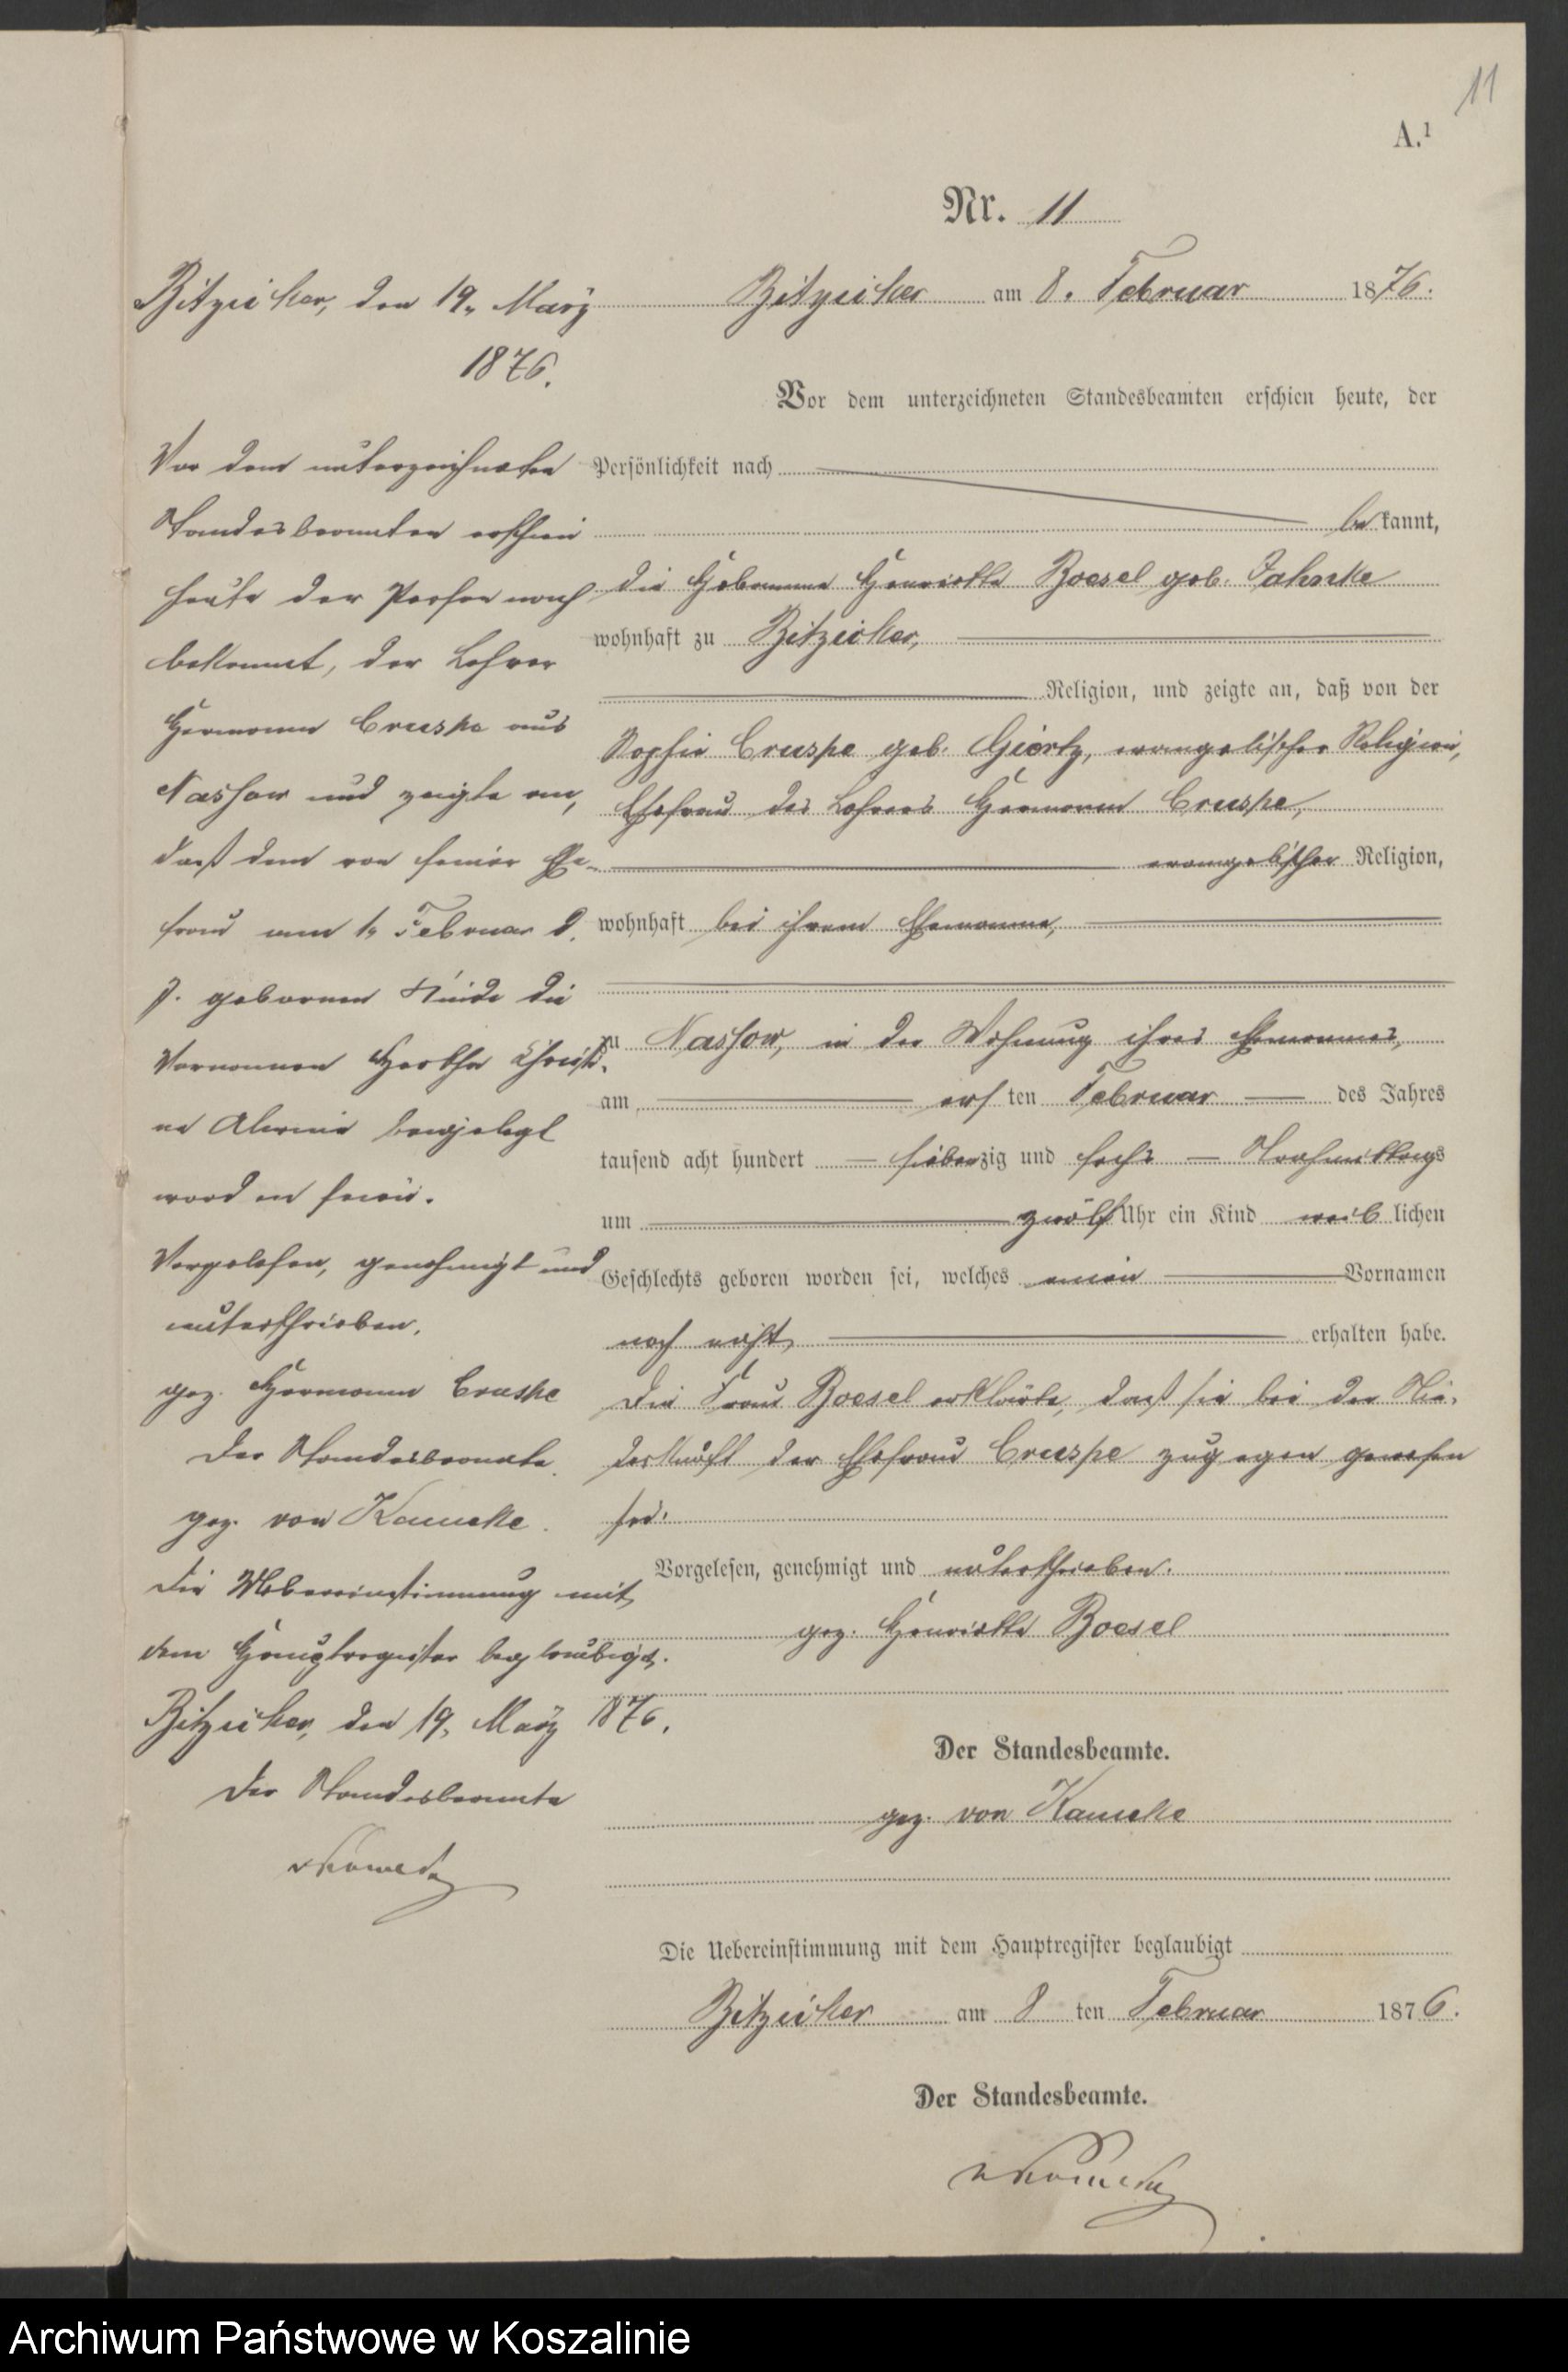 11
A.¹
Nr. 11
Bitziker, den 19. März
1876.
Vor dem unterzeichneten
Standesbeamten erschien
heute der Person nach
bekannt, der Lehrer
Hermann Cruspe aus
Nassow und zeigte an,
daß dem von seiner Ehe-
frau am 1. Februar d.
J. gebornen Kinde die
Vornamen Hertha Christi-
ne beigelegt
worden seien.
Vorgelesen, genehmigt und
unterschrieben.
gez. Hermann Cruspe
Der Standesbeamte.
gez. von Kameke.
Die Uebereinstimmung mit
dem Hauptregister beglaubigt.
Bitziker, den 19. März 1876.
Der Standesbeamte
vKameke
Bitziker am 8. Februar 1876.
Vor dem unterzeichneten Standesbeamten erschien heute, der
Persönlichkeit nach
bekannt,
die Hebamme Henriette Boesel geb. Jahnke
wohnhaft zu Bitziker,
Religion, und zeigte an, daß von der
Sophie Cruspe geb. Giertz, evangelischer Religion,
Ehefrau des Lehrers Hermann Cruspe,
evangelischer Religion,
wohnhaft bei ihrem Ehemanne,
zu Nassow, in der Wohnung ihres Ehemannes,
am ersten Februar des Jahres
tausend acht hundert siebenzig und sechs Nachmittags
um zwölf Uhr ein Kind weiblichen
Geschlechts geboren worden sei, welches einen Vornamen
noch nicht erhalten habe.
Die Frau Boesel erklärte, daß sie bei der Nie-
derkunft der Ehefrau Cruspe zugegen gewesen
sei.
Vorgelesen, genehmigt und unterschrieben.
gez. Henriette Boesel
Der Standesbeamte.
gez. von Kameke
Die Uebereinstimmung mit dem Hauptregister beglaubigt
Bitziker am 8 ten Februar 1876.
Der Standesbeamte.
vKameke
Archiwum Państwowe w Koszalinie